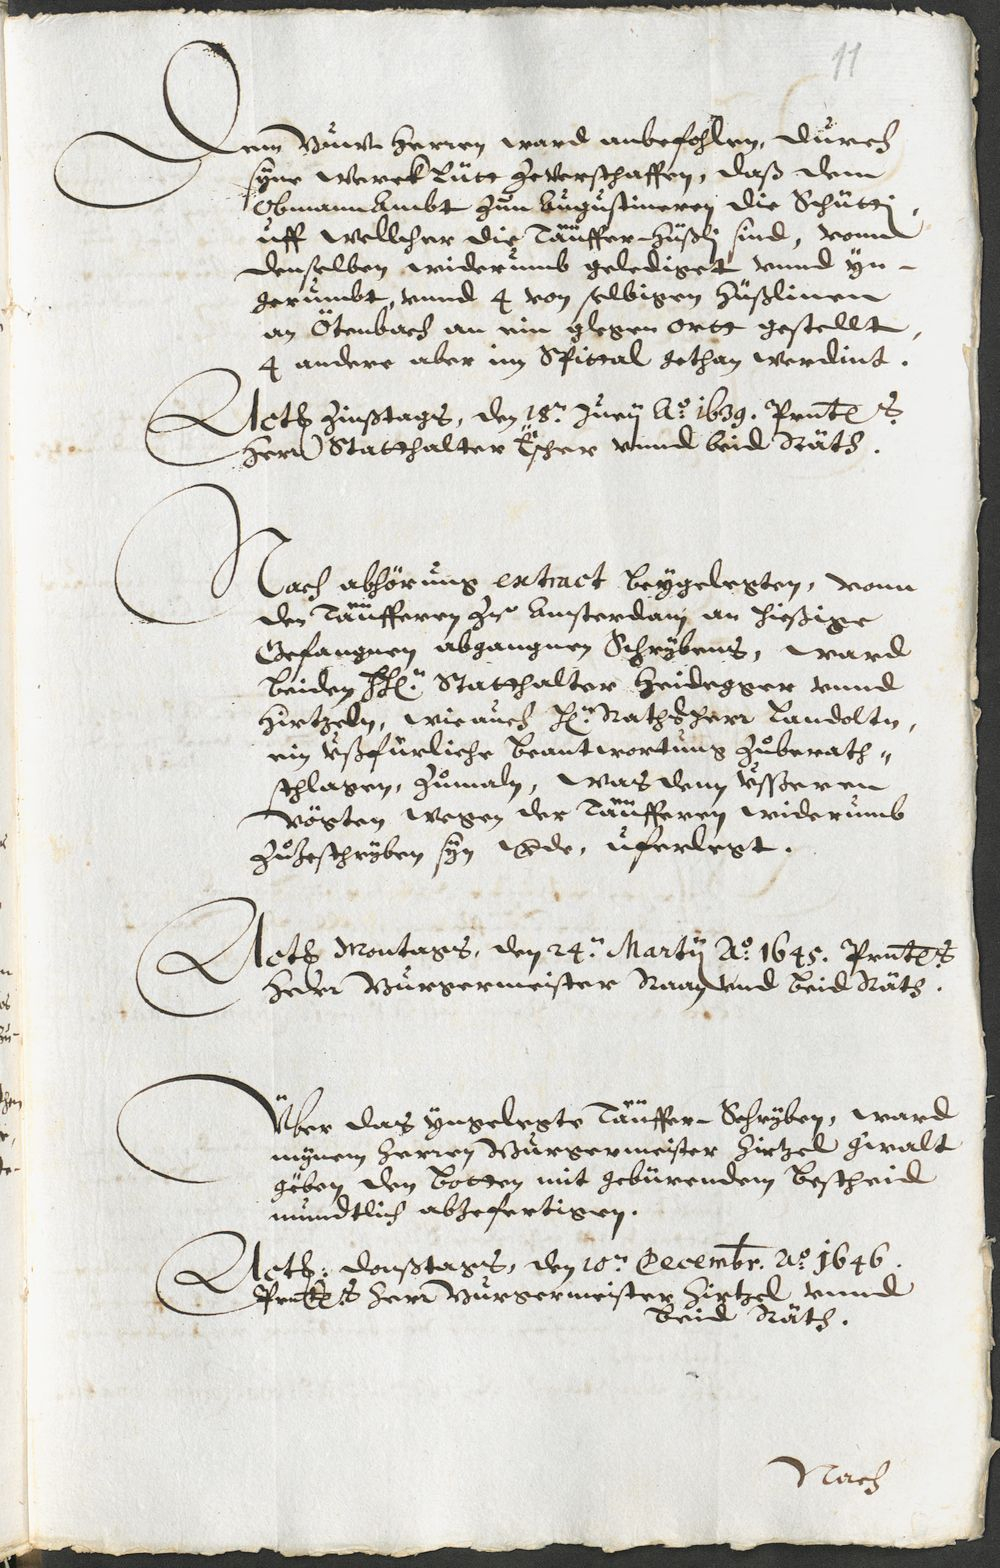 11
Dem Buw Herren ward anbefohlen, durch
syne Werck Lüte zeverschaffen, daß dem
Obmann Ambt zun Augustineren die Schütti,
uff wellcher die Täüffer-Hüßli sind, vonn
denselben widerumb gelediget unnd yn-
gerumbt, unnd 4 von selbigen Hüßlinen
an Ötenbach an ein glegen ortt gestellt,
4 andere aber im Spittal gethan werdint.
Actū Zinßtags, den 18.ⁿ Juny Aº. 1639. Prnt. S.
Herr Statthalter Escher unnd beid Räth.
Nach abhörung extract beygelegten, vonn
den Täüfferen zu Amsterdam an hießige
Gefangnen abgangnen Schrybens, ward
beiden HH.ⁿ Statthalter Heidegger unnd
Hirtzeln, wie auch H.ⁿ Rathsherr Landoltn,
ein ußfürliche beantwortung zuberath-
schlagen, zumaln, was dem ußeren
Vögten wegen der Täüfferen widerumb
zuzeschryben syn werde, uferlegt.
Actū Montags, den 24.ⁿ Martij Aº. 1645. Prnt. S.
Herr Burgermeister Raan und beid Räth.
Über das yngelegte Täüffer-Schryben, ward
mynem Herren Burgermeister Hirtzel gwalt
geben den Botten mit gebürendem bescheid
mundtlich abzefertigen.
Actū: Donstags, den 10.ⁿ Decembr. Aº. 1646.
Prnt. S. Herr Burgermeister Hirtzel unnd
beid Räth.
Nach